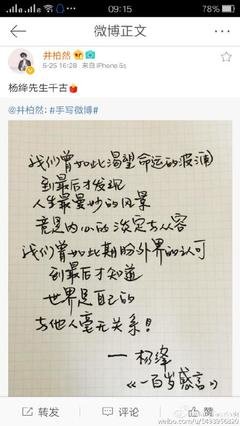 09:15
78%
微博正文
井柏然
5-25 16:28 来自iPhone 6s
杨绛先生千古
@井柏然：#手写微博#
我们曾如此渴望命运的波澜
到最后才发现
人生最曼妙的风景
竟是内心的淡定与从容
我们曾如此期盼外界的认可
到最后才知道
世界是自己的
与他人毫无关系！
— 杨绛
《一百岁感言》
转发
评论
赞
weibo.com/u/5493956890